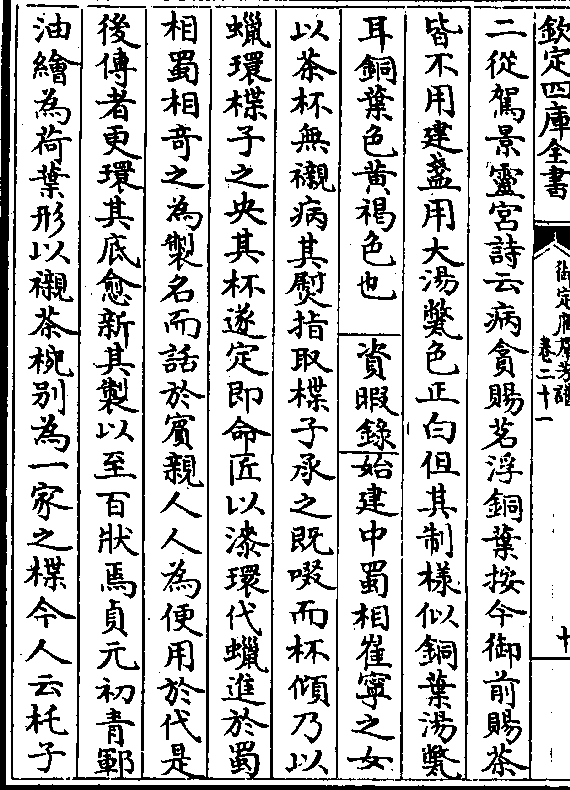 欽定四庫全書
御定廣羣芳譜
卷二十一
十
二從駕景靈宮詩云病貪賜茗浮銅葉按今御前賜茶
皆不用建盞用大湯氅色正白但其制樣似銅葉湯氅
耳銅葉色黄褐色也 資暇錄始建中蜀相崔寧之女
以茶杯無襯病其熨指取楪子承之既啜而杯傾乃以
蠟環楪子之央其杯遂定即命匠以漆環代蠟進於蜀
相蜀相奇之為製名而話於賓親人人為便用於代是
後傳者更環其底愈新其製以至百狀焉貞元初青鄆
油繒為荷葉形以襯茶椀别為一家之楪今人云托子